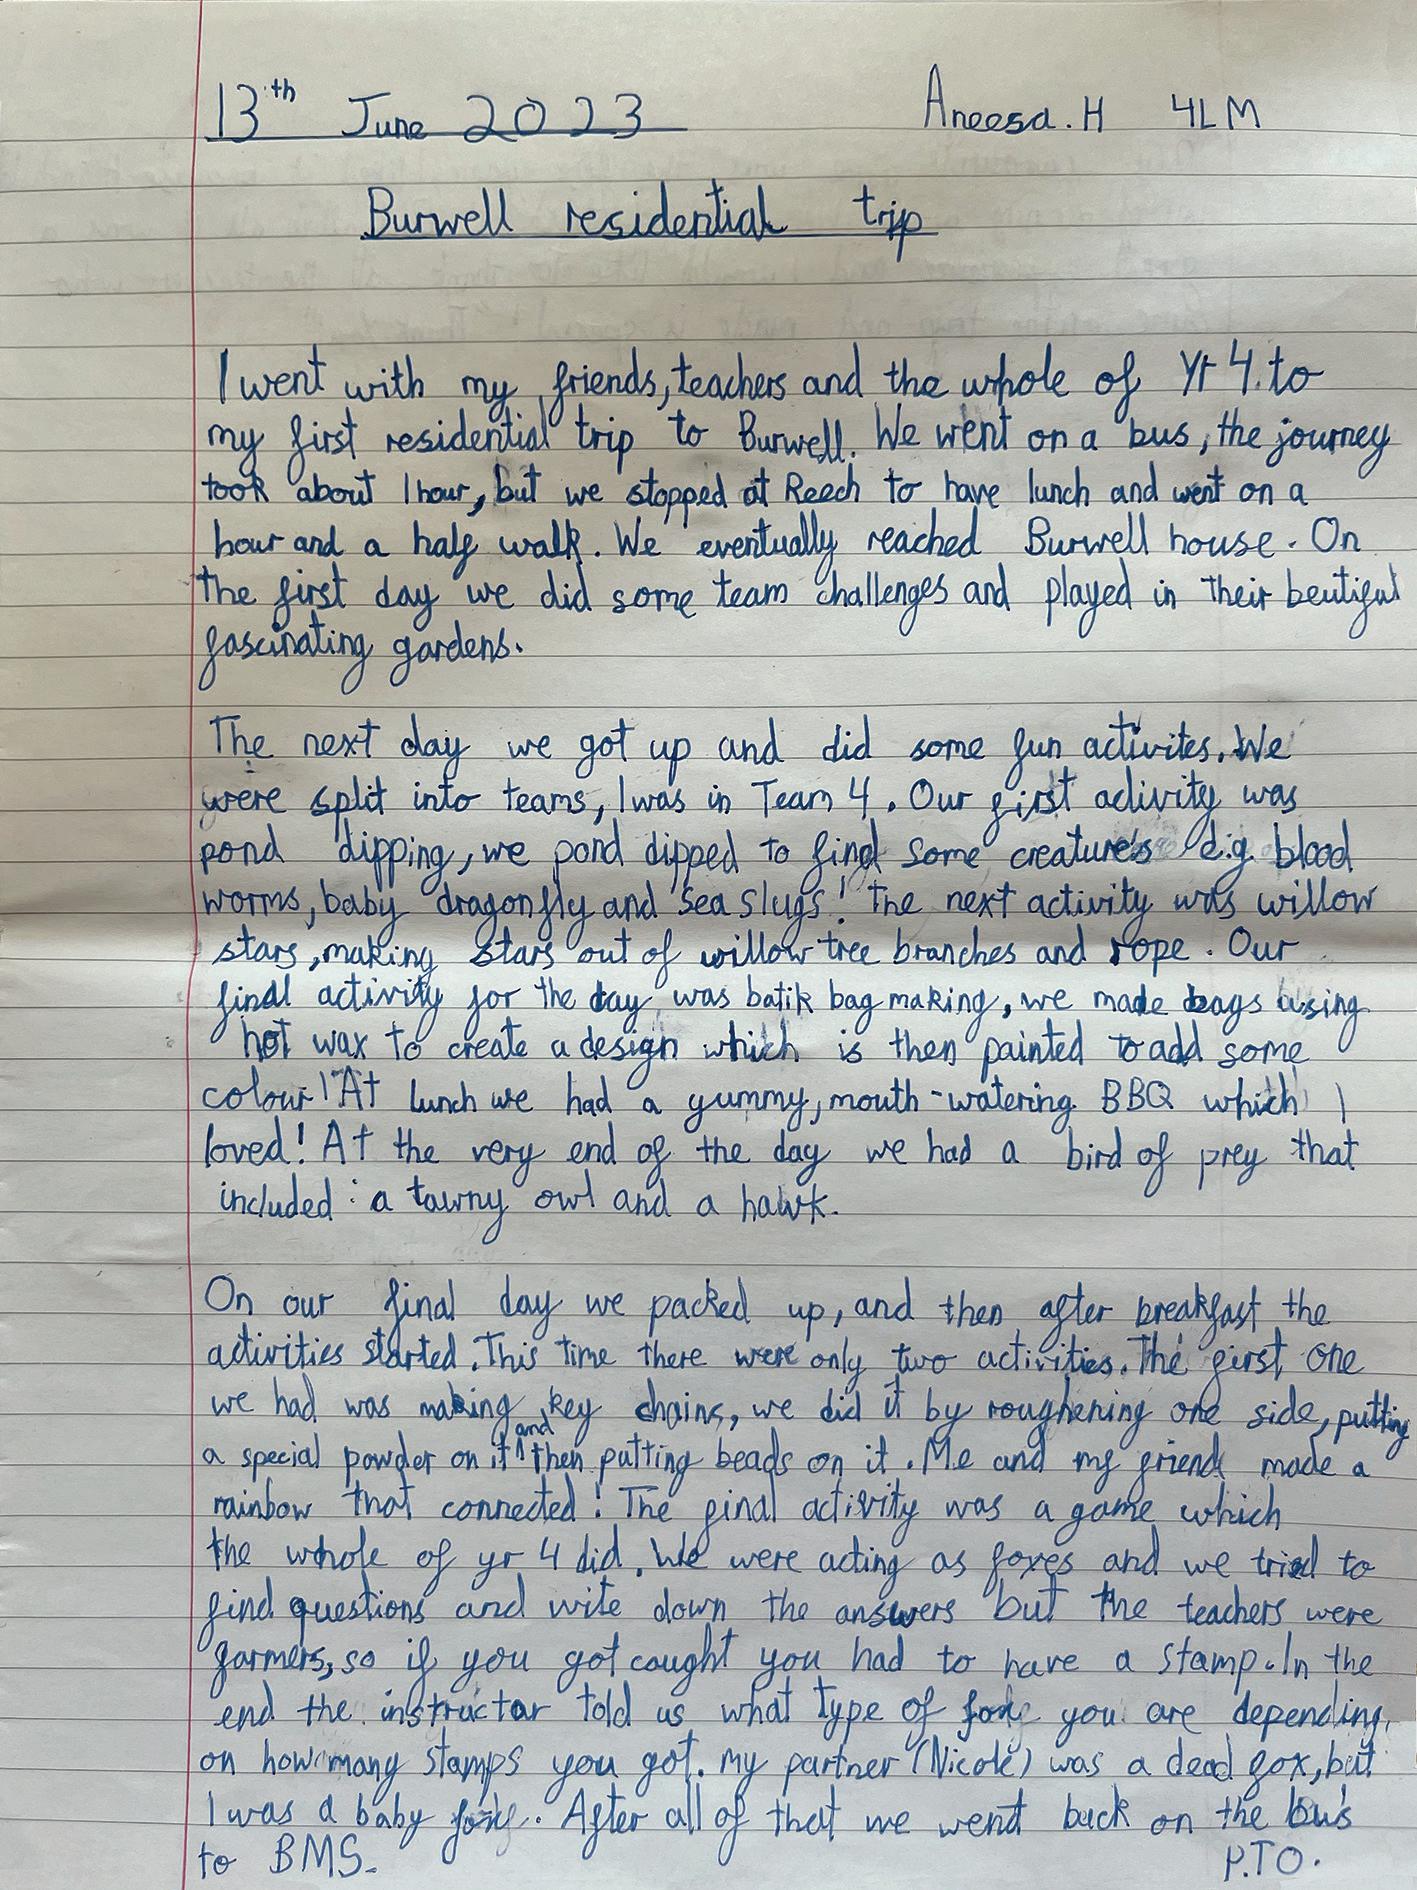 13th June 2023 Aneesa.H 4LM
Burwell residential trip
I went with my friends, teachers and the whole of Yr 4 to
my first residential trip to Burwell. We went on a bus, the journey
took about 1 hour, but we stopped at Reech to have lunch and went on a
hour and a half walk. We eventually reached Burwell house. On
the first day we did some team challenges and played in their beutiful
fascinating gardens.
The next day we got up and did some fun activites. We
were split into teams, I was in Team 4. Our first activity was
pond dipping, we pond dipped to find some creatures e.g. blood
worms, baby dragonfly and sea slugs! The next activity was willow
stars, making stars out of willow tree branches and rope. Our
final activity for the day was batik bag making, we made bags using
hot wax to create a design which is then painted to add some
colour! At lunch we had a yummy, mouth-watering BBQ which I
loved! At the very end of the day we had a bird of prey that
included: a tawny owl and a hawk.
On our final day we packed up, and then after breakfast the
activities started. This time there were only two activities. The first one
we had was making key chains, we did it by roughening one side, putting
a special powder on it and then putting beads on it. Me and my friend made a
rainbow that connected! The final activity was a game which
the whole of yr 4 did. We were acting as foxes and we tried to
find questions and write down the answers but the teachers were
farmers, so if you got caught you had to have a stamp. In the
end the instructor told us what type of fox you are depending
on how many stamps you got. My partner (Nicole) was a dead fox, but
I was a baby fox. After all of that we went back on the bus
to BMS. P.T.O.